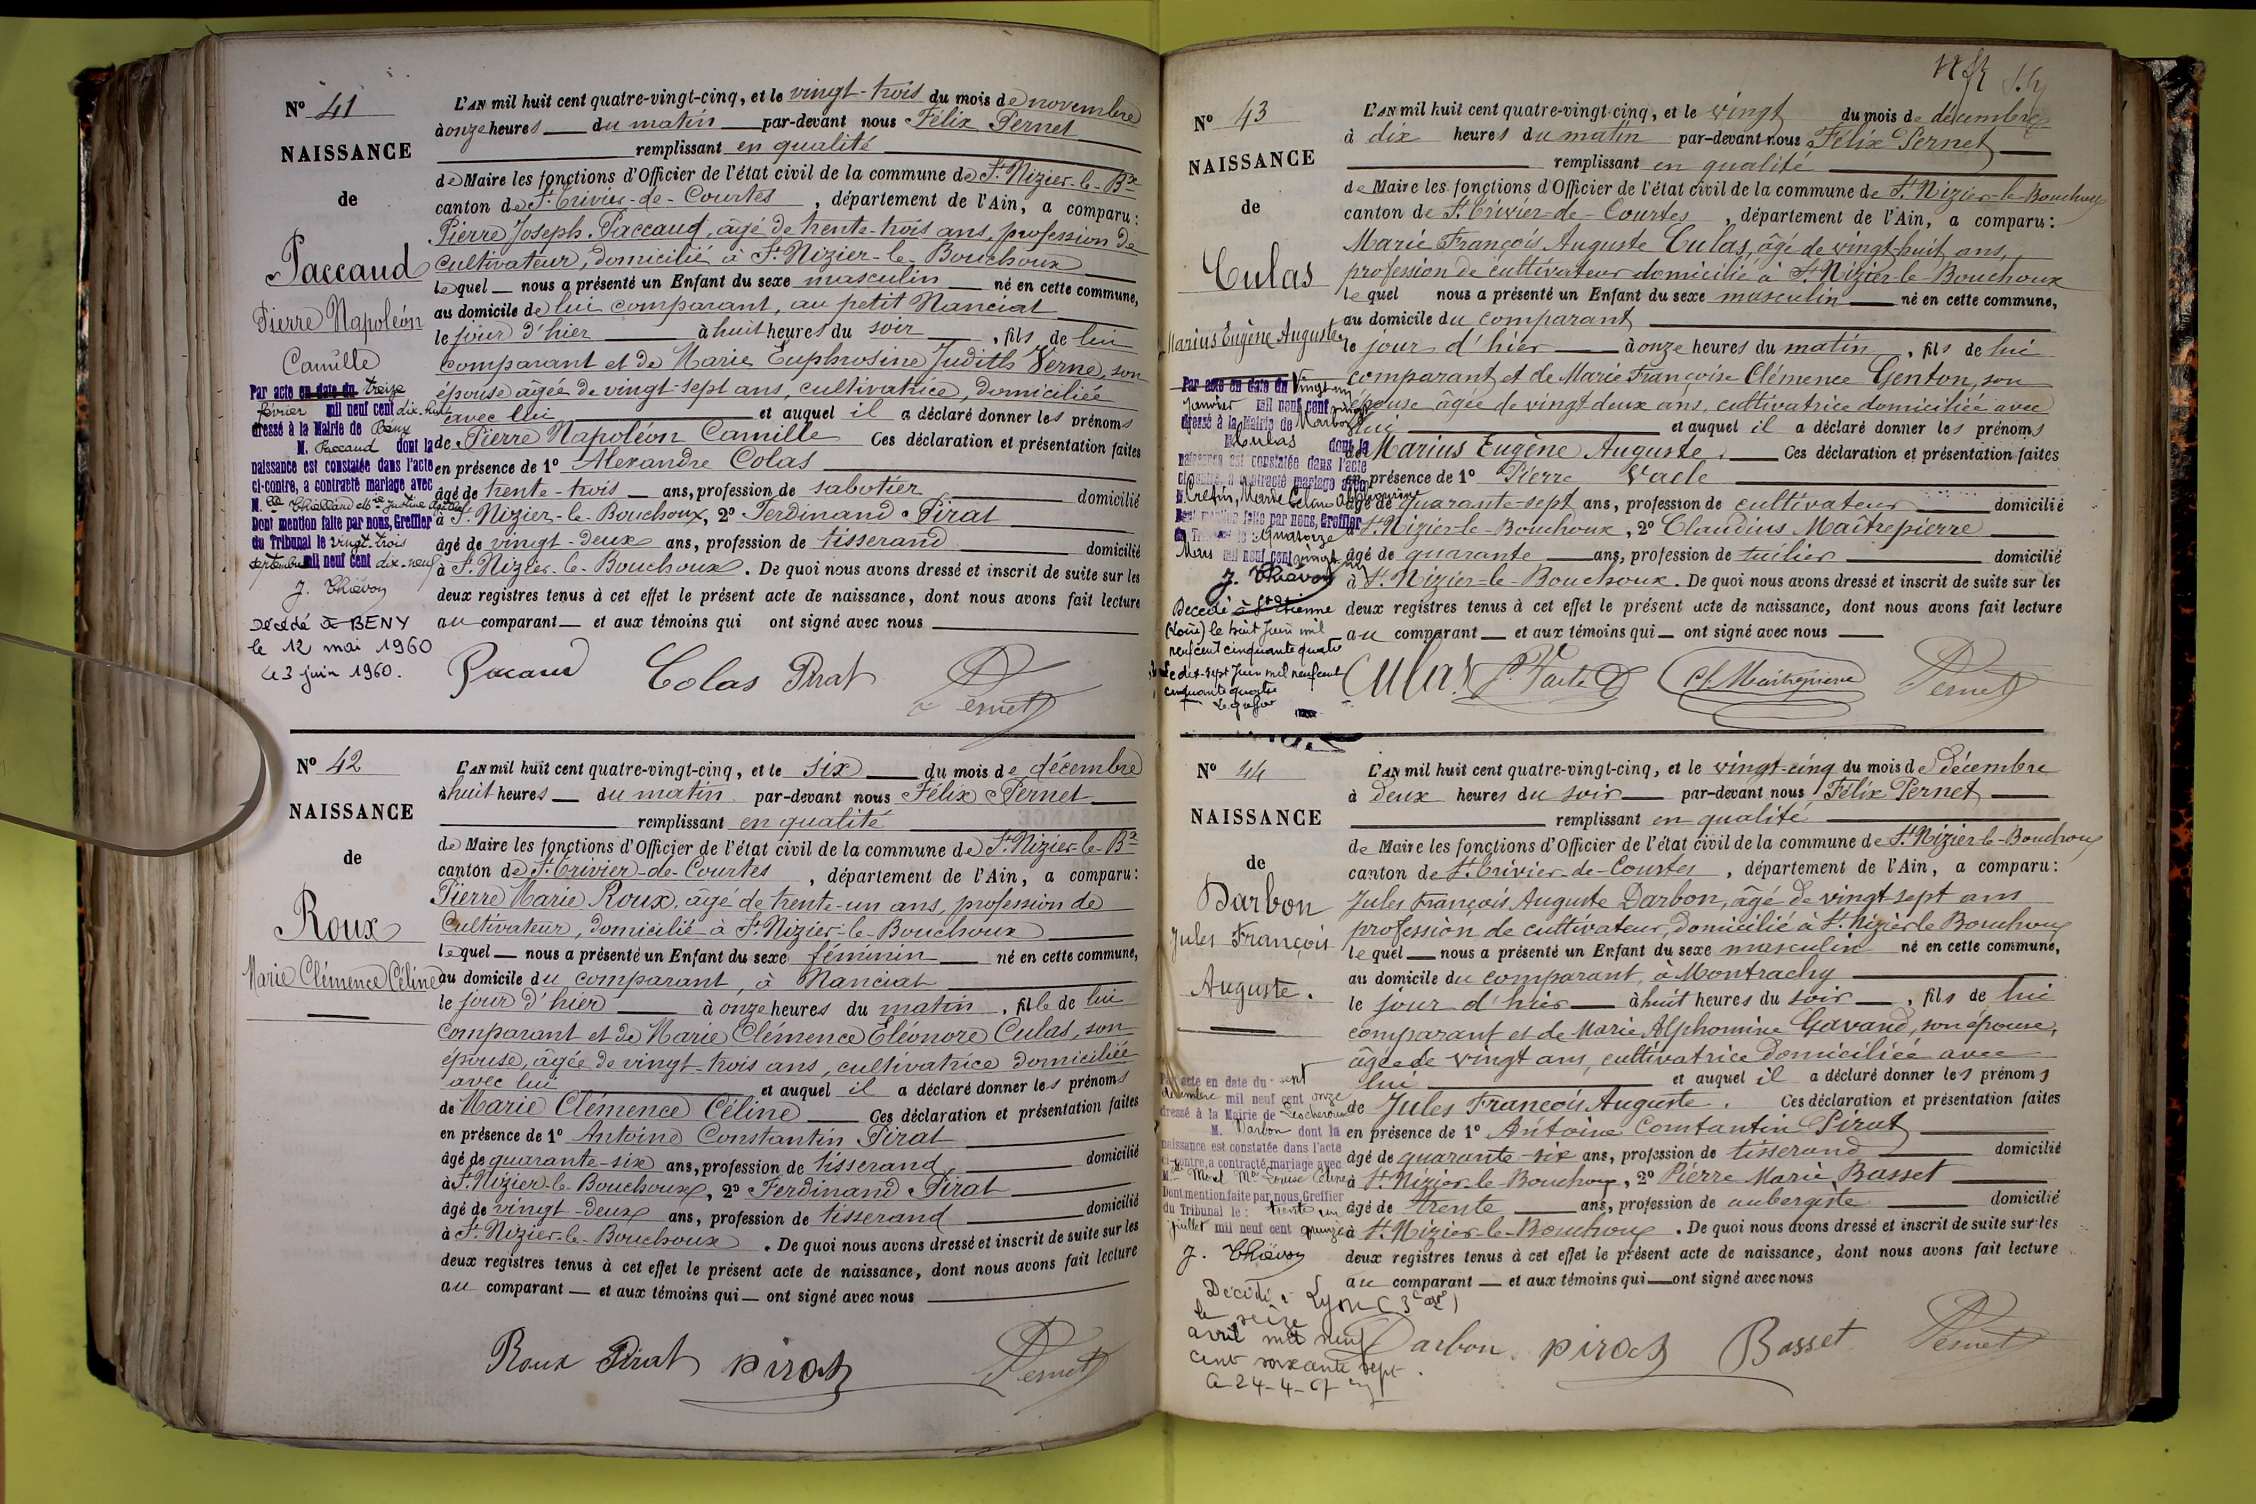 Nº 41
NAISSANCE
de
Paccaud
Pierre Napoléon
Camille
Par acte en date du treize
février mil neuf cent dix-huit
dressé à la Mairie de Beny
M. Paccaud dont la
naissance est constatée dans l'acte
ci-contre, a contracté mariage avec
M. elle Justine
Dont mention faite par nous, Greffier
du Tribunal le vingt-trois
septembre mil neuf cent dix-neuf
J. Thiévon
Décédé à BENY
le 12 mai 1960
Le 3 juin 1960.
L'AN mil huit cent quatre-vingt-cinq, et le vingt-trois du mois de novembre
à onze heures du matin par-devant nous Félix Pernet
remplissant en qualité
de Maire les fonctions d'Officier de l'état civil de la commune de St. Nizier-le-Bx
canton de St. Trivier-de-Courtes, département de l'Ain, a comparu:
Pierre Joseph Paccaud, âgé de trente-trois ans, profession de
cultivateur, domicilié à St. Nizier-le-Bouchoux
lequel nous a présenté un Enfant du sexe masculin né en cette commune,
au domicile de lui comparant, au petit Nanciat
le jour d'hier à huit heures du soir, fils de lui
comparant et de Marie Euphrosine Judith Verne, son
épouse âgée de vingt-sept ans, cultivatrice, domiciliée
avec lui et auquel il a déclaré donner les prénoms
de Pierre Napoléon Camille Ces déclaration et présentation faites
en présence de 1º Alexandre Colas
âgé de trente-trois ans, profession de sabotier domicilié
à St. Nizier-le-Bouchoux, 2º Ferdinand Pirat
âgé de vingt-deux ans, profession de tisserand domicilié
à St. Nizier-le-Bouchoux. De quoi nous avons dressé et inscrit de suite sur les
deux registres tenus à cet effet le présent acte de naissance, dont nous avons fait lecture
au comparant et aux témoins qui ont signé avec nous
Pacaud Colas Pirat Pernet
Nº 42
NAISSANCE
de
Roux
Marie Clémence Céline
L'AN mil huit cent quatre-vingt-cinq, et le six du mois de décembre
à huit heures du matin par-devant nous Félix Pernet
remplissant en qualité
de Maire les fonctions d'Officier de l'état civil de la commune de St. Nizier-le-Bx
canton de St. Trivier-de-Courtes, département de l'Ain, a comparu:
Pierre Marie Roux, âgé de trente-un ans, profession de
cultivateur, domicilié à St. Nizier-le-Bouchoux
lequel nous a présenté un Enfant du sexe féminin né en cette commune,
au domicile du comparant, à Nanciat
le jour d'hier à onze heures du matin, fille de lui
comparant et de Marie Clémence Eléonore Culas, son
épouse, âgée de vingt-trois ans, cultivatrice domiciliée
avec lui et auquel il a déclaré donner les prénoms
de Marie Clémence Céline Ces déclaration et présentation faites
en présence de 1º Antoine Constantin Pirat
âgé de quarante-six ans, profession de tisserand, domicilié
à St. Nizier-le-Bouchoux, 2º Ferdinand Pirat
âgé de vingt-deux ans, profession de tisserand domicilié
à St. Nizier-le-Bouchoux. De quoi nous avons dressé et inscrit de suite sur les
deux registres tenus à cet effet le présent acte de naissance, dont nous avons fait lecture
au comparant et aux témoins qui ont signé avec nous
Roux Pirat Pirat Pernet
Nº 43
NAISSANCE
de
Culas
Marius Eugène Auguste
Par acte en date du vingt-un
janvier mil neuf cent vingt
dressé à la Mairie de Marboz
M. Culas dont la
naissance est constatée dans l'acte
ci-contre, a contracté mariage avec
Crétin, Marie
Dont mention faite par nous, Greffier
du Tribunal le quatorze
Mars mil neuf cent vingt un
J. Thiévon
Décédé à St Etienne
(Loire) le huit Juin mil
neuf cent cinquante quatre
Le dix-sept Juin mil neuf cent
cinquante quatre
Le greffier
L'AN mil huit cent quatre-vingt-cinq, et le vingt du mois de décembre
à dix heures du matin par-devant nous Félix Pernet
remplissant en qualité
de Maire les fonctions d'Officier de l'état civil de la commune de St. Nizier-le-Bouchoux
canton de St. Trivier-de-Courtes, département de l'Ain, a comparu:
Marie François Auguste Culas, âgé de vingt-huit ans,
profession de cultivateur domicilié à St. Nizier-le-Bouchoux
lequel nous a présenté un Enfant du sexe masculin né en cette commune,
au domicile du comparant
le jour d'hier à onze heures du matin, fils de lui
comparant et de Marie Françoise Clémence Genton, son
épouse âgée de vingt deux ans, cultivatrice domiciliée avec
lui et auquel il a déclaré donner les prénoms
de Marius Eugène Auguste. Ces déclaration et présentation faites
en présence de 1º Pierre Vacle
âgé de quarante-sept ans, profession de cultivateur domicilié
à St. Nizier-le-Bouchoux, 2º Claudius Maitrepierre
âgé de quarante ans, profession de tuilier domicilié
à St. Nizier-le-Bouchoux. De quoi nous avons dressé et inscrit de suite sur les
deux registres tenus à cet effet le présent acte de naissance, dont nous avons fait lecture
au comparant et aux témoins qui ont signé avec nous
Culas P. Vacle Cl. Maitrepierre Pernet
Nº 44
NAISSANCE
de
Darbon
Jules François
Auguste.
Par acte en date du sept
décembre mil neuf cent onze
dressé à la Mairie de Lescheroux
M. Darbon dont la
naissance est constatée dans l'acte
ci-contre, a contracté mariage avec
M. elle Morel Mie Louise Céline
Dont mention faite par nous, Greffier
du Tribunal le trente un
juillet mil neuf cent quinze
J. Thiévon
Décédé à Lyon (3e arr)
le seize
avril mil neuf
cent soixante sept.
Le 24-4-67
L'AN mil huit cent quatre-vingt-cinq, et le vingt-cinq du mois de décembre
à deux heures du soir par-devant nous Félix Pernet
remplissant en qualité
de Maire les fonctions d'Officier de l'état civil de la commune de St. Nizier-le-Bouchoux
canton de St. Trivier-de-Courtes, département de l'Ain, a comparu:
Jules François Auguste Darbon, âgé de vingt sept ans
profession de cultivateur, domicilié à St. Nizier le Bouchoux
lequel nous a présenté un Enfant du sexe masculin né en cette commune,
au domicile du comparant, à Montrachy
le jour d'hier à huit heures du soir, fils de lui
comparant et de Marie Alphonsine Gavand, son épouse,
âgée de vingt ans, cultivatrice domiciliée avec
lui et auquel il a déclaré donner les prénoms
de Jules François Auguste. Ces déclaration et présentation faites
en présence de 1º Antoine Constantin Pirat
âgé de quarante-six ans, profession de tisserand domicilié
à St. Nizier-le-Bouchoux, 2º Pierre Marie Basset
âgé de trente ans, profession de aubergiste domicilié
à St. Nizier-le-Bouchoux. De quoi nous avons dressé et inscrit de suite sur les
deux registres tenus à cet effet le présent acte de naissance, dont nous avons fait lecture
au comparant et aux témoins qui ont signé avec nous
Darbon Pirat Basset Pernet